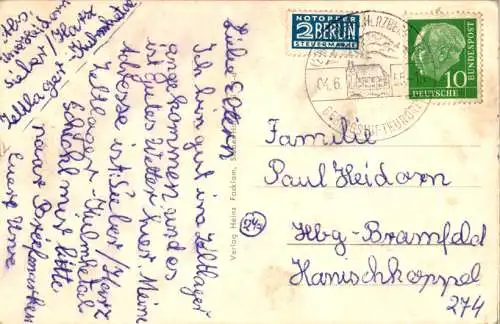 Abs.
Sieber/Harz
Zeltlager Kulmketal
Liebe Eltern
Ich bin gut ins Zeltlager
angekommen und es
ist gutes Wetter hier. Meine
Adresse ist: Sieber/Harz
Zeltlager - Kulmketal
Schickt mir bitte
paar Briefmarken
Eure Uwe
Verlag Heinz Focklam,
24a
NOTOPFER
2 BERLIN
STEUERMARKE
10
DEUTSCHE
BUNDESPOST
04.6.
Familie
Paul Heidorn
Hbg-Bramfeld
Hanischkoppel
274